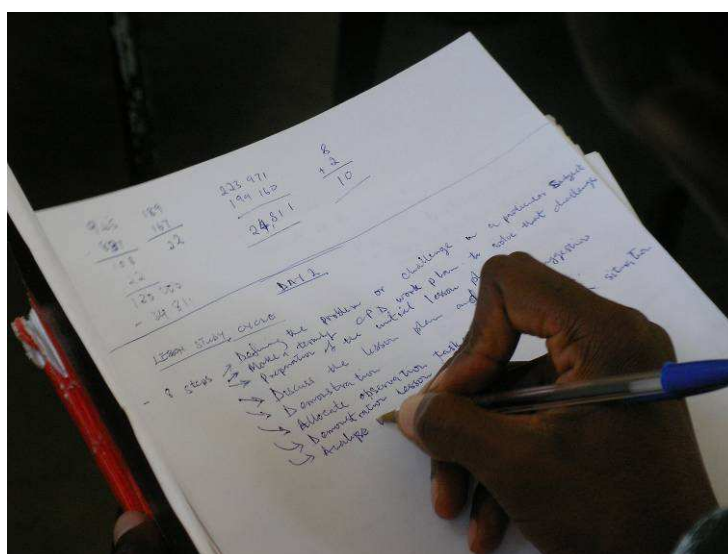 945 189 223 971 8
- 837 167 199 160 + 2
108 22 24,811 10
22
123 000
- 24 811
DAY 2
LESSON STUDY CYCLE
- 8 steps → Defining the problem or challenge in a particular subject
→ Make a termly CPD work plan to solve that challenge
→ Preparation of the initial lesson plan
→ Discuss the lesson plan and suggestive
→ Demonstration situation
→ Allocate observation task
→ Demonstration lesson
→ Analyse